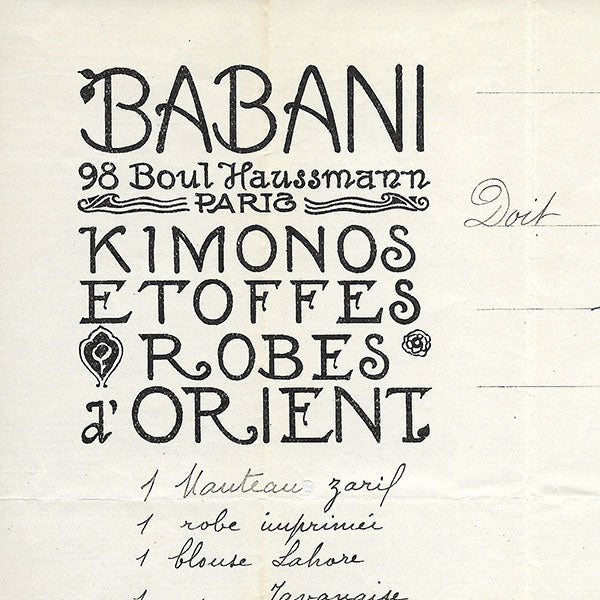 BABANI
98 Boul Haussmann
PARIS
Doit
KIMONOS
ETOFFES
ROBES
d'ORIENT
1 Manteau zarif
1 robe imprimée
1 blouse Lahore
1 Javanaise